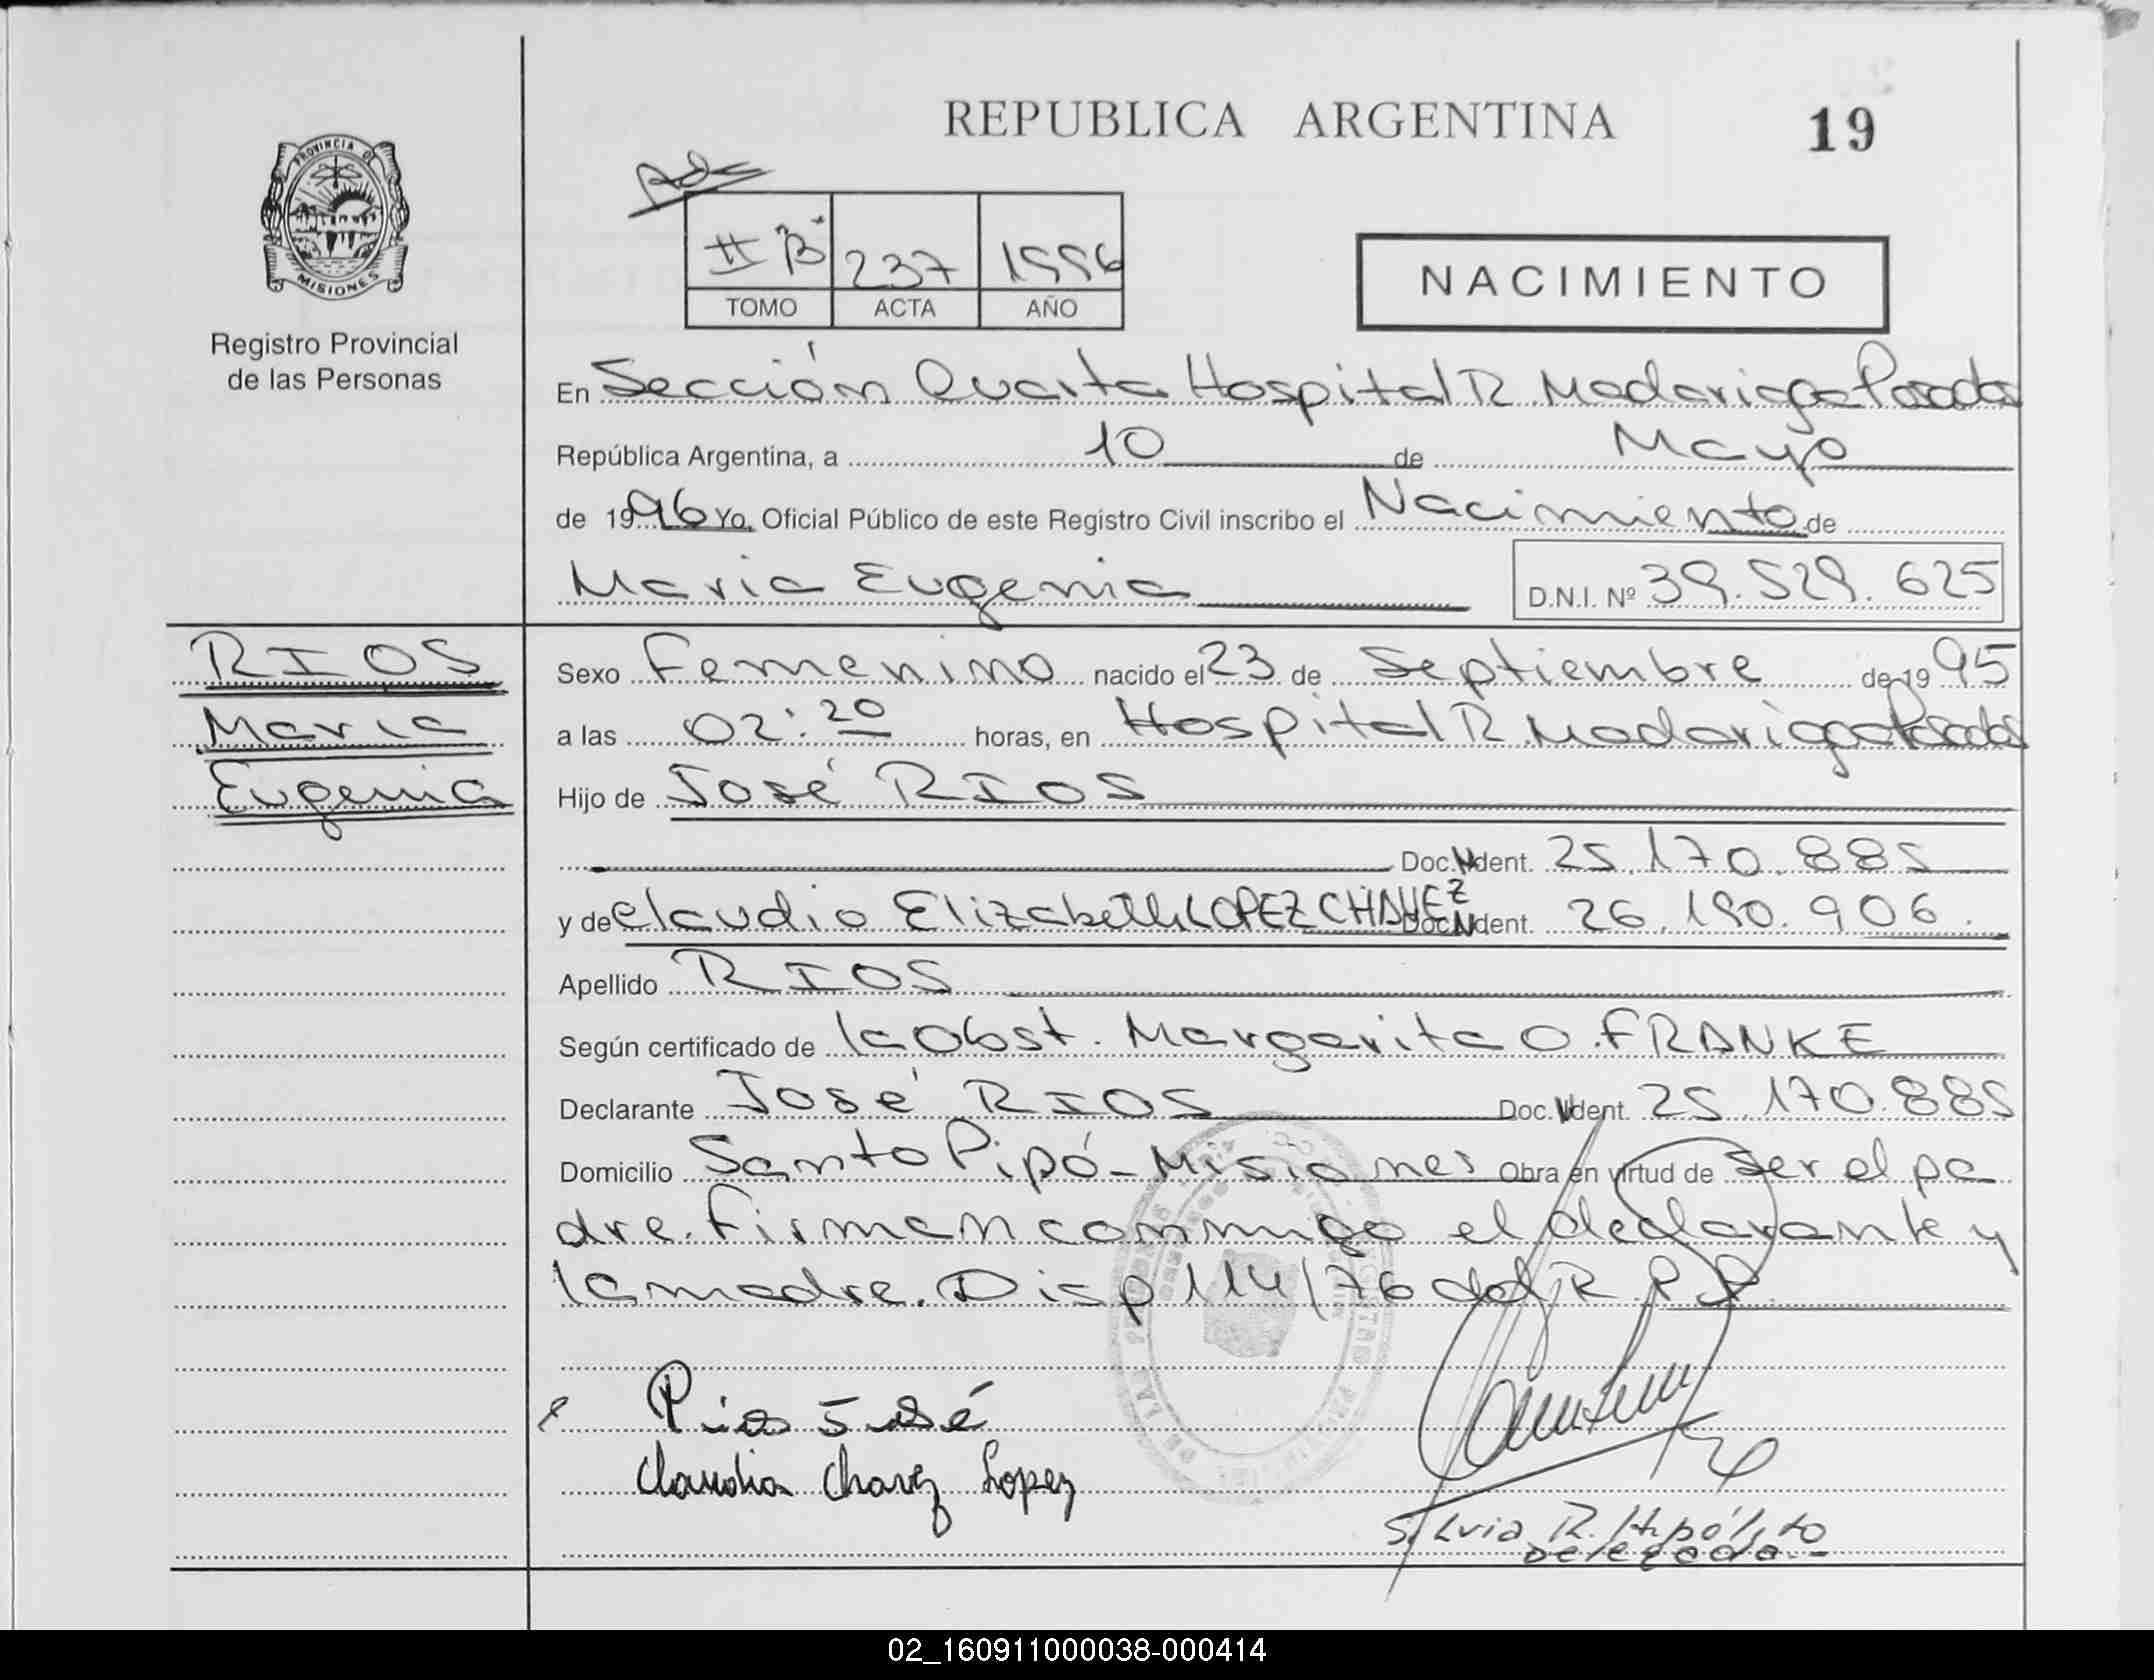 REPUBLICA ARGENTINA
19
PROVINCIA DE
MISIONES
Registro Provincial
de las Personas
II "B" 237 1996
TOMO ACTA AÑO
NACIMIENTO
En Sección Quarta Hospital R. Madariaga Posadas
República Argentina, a 10 de Mayo
de 1996 Yo, Oficial Público de este Registro Civil inscribo el Nacimiento de
Maria Eugenia D.N.I. Nº 39.529.625
RIOS
Maria
Eugenia
Sexo Femenino nacido el 23 de Septiembre de 1995
a las 02:20 horas, en Hospital R. Madariaga Posadas
Hijo de José RIOS
Doc. Ident. 25.170.885
y de Claudia Elizabeth LOPEZ CHAVEZ Doc. Ident. 26.190.906.
Apellido RIOS
Según certificado de la Obst. Margarita O. FRANKE
Declarante José RIOS Doc. Ident. 25.170.885
Domicilio Santo Pipó - Misiones Obra en virtud de ser el pa
dre. Firman conmigo el declarante y
la madre. Disp 114/76 del R.P.P.
Rios José
Claudia Chavez Lopez
Silvia R. Hipólito
Delegada.-
02_160911000038-000414